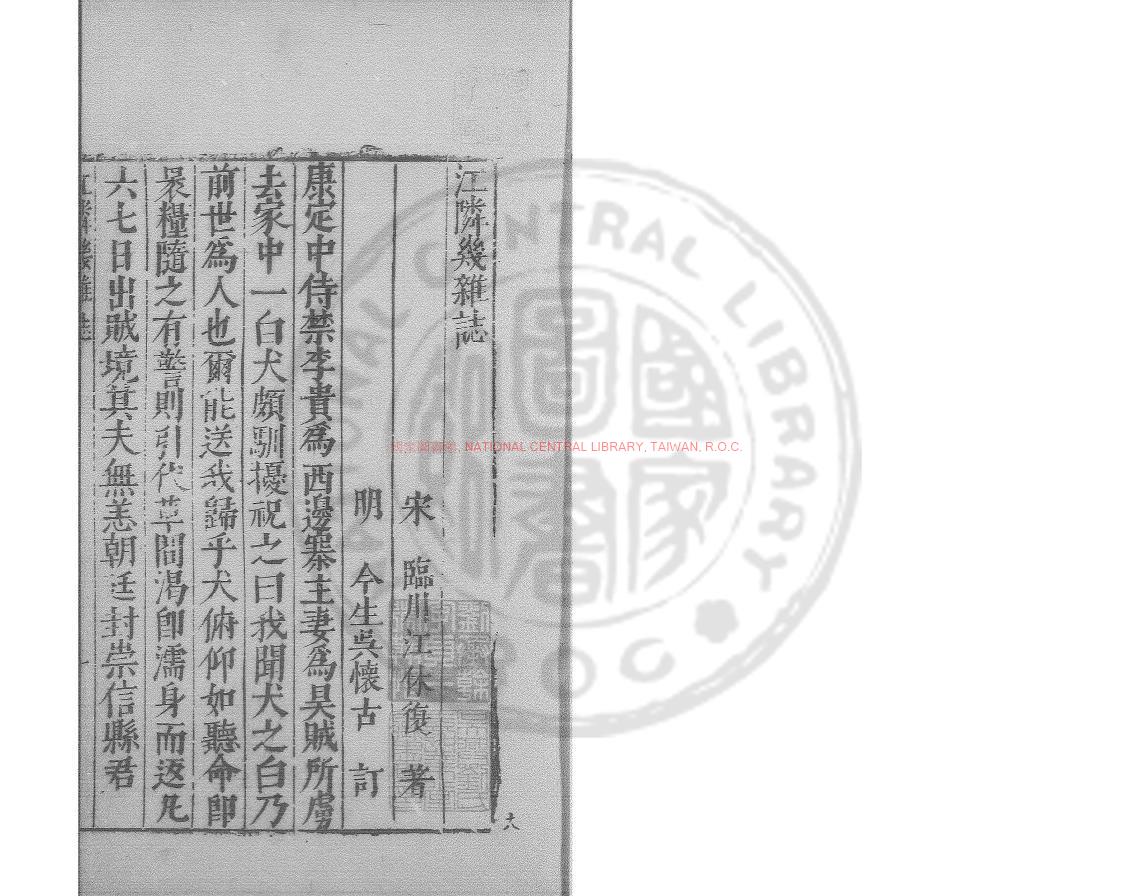 江隣幾雜誌
宋 臨川江休復 著
明 今生吳懷古 訂
康定中侍禁李貴為西邊寨主妻為昊賊所虜
去家中一白犬頗馴擾祝之曰我聞犬之白乃
前世為人也爾能送我歸乎犬俯仰如聽命即
裹糧隨之有警則引伏草間渴即濡身而返凡
六七日出賊境其夫無恙朝廷封崇信縣君
江隣幾雜誌
一
國家圖書館, NATIONAL CENTRAL LIBRARY, TAIWAN, R.O.C.
NATIONAL CENTRAL LIBRARY
R.O.C.
國家圖書館